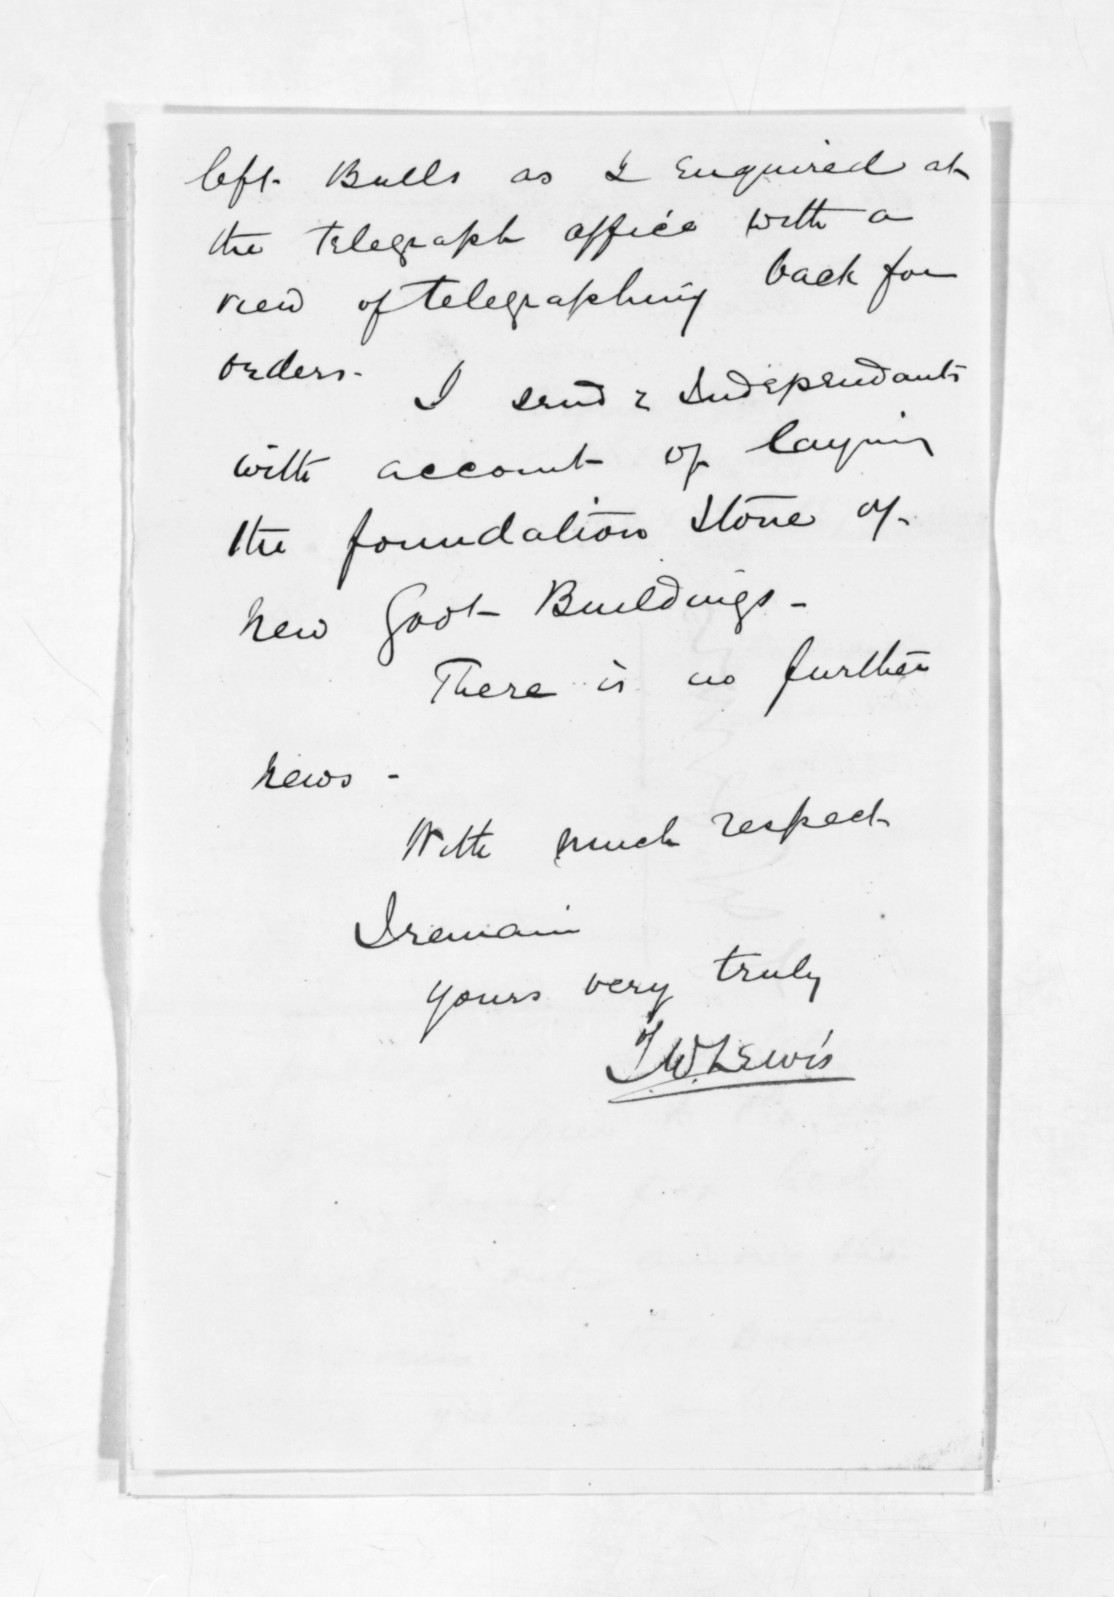 left Bulls as I enquired at
the telegraph office with a
view of telegraphing back for
orders.
I send 2 Independants
with account of laying
the foundation stone of
new Govt Buildings -
There is no further
news -
With much respect
I remain
yours very truly
T W Lewis